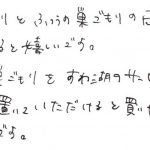 りと ふつうの巣ごもりの
ると嬉いです。
ごもりを すわ湖のサー
置いていただけると買い
です。